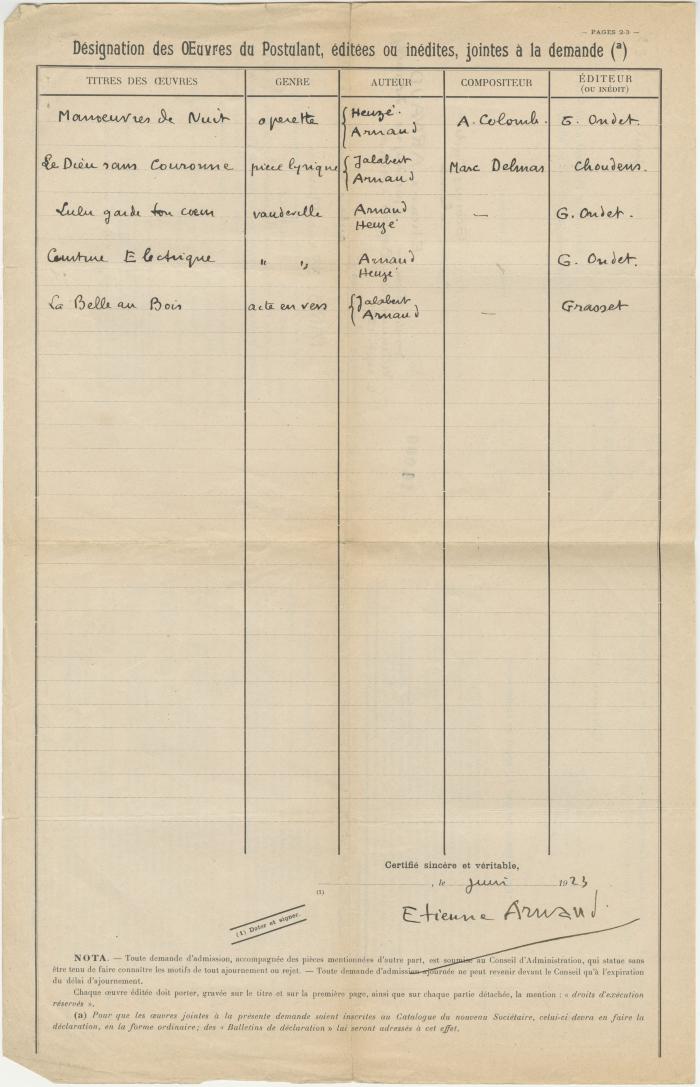 — PAGES 2-3 —
Désignation des Œuvres du Postulant, éditées ou inédites, jointes à la demande (ª)
TITRES DES ŒUVRES GENRE AUTEUR COMPOSITEUR ÉDITEUR
(OU INÉDIT)
Manoeuvres de Nuit operette { Heuzé. A. Colomb. G. Ondet.
Arnaud
Le Dieu sans Couronne piece lyrique { Jalabert Marc Delmas Choudens.
Arnaud
Lulu garde ton coeur vaudeville Arnaud — G. Ondet.
Heuzé
Ceinture Electrique " " Arnaud G. Ondet.
Heuzé
La Belle au Bois acte en vers { Jalabert — Grasset
Arnaud
Certifié sincère et véritable,
(1) , le juin 1923
(1) Dater et signer.
Etienne Arnaud
NOTA. — Toute demande d'admission, accompagnée des pièces mentionnées d'autre part, est soumise au Conseil d'Administration, qui statue sans
être tenu de faire connaître les motifs de tout ajournement ou rejet. — Toute demande d'admission ajournée ne peut revenir devant le Conseil qu'à l'expiration
du délai d'ajournement.
Chaque œuvre éditée doit porter, gravée sur le titre et sur la première page, ainsi que sur chaque partie détachée, la mention : « droits d'exécution
réservés ».
(a) Pour que les œuvres jointes à la présente demande soient inscrites au Catalogue du nouveau Sociétaire, celui-ci devra en faire la
déclaration, en la forme ordinaire; des « Bulletins de déclaration » lui seront adressés à cet effet.